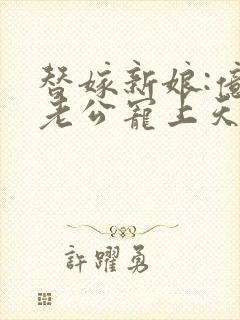 替嫁新娘:億
老公寵上天
許躍勇